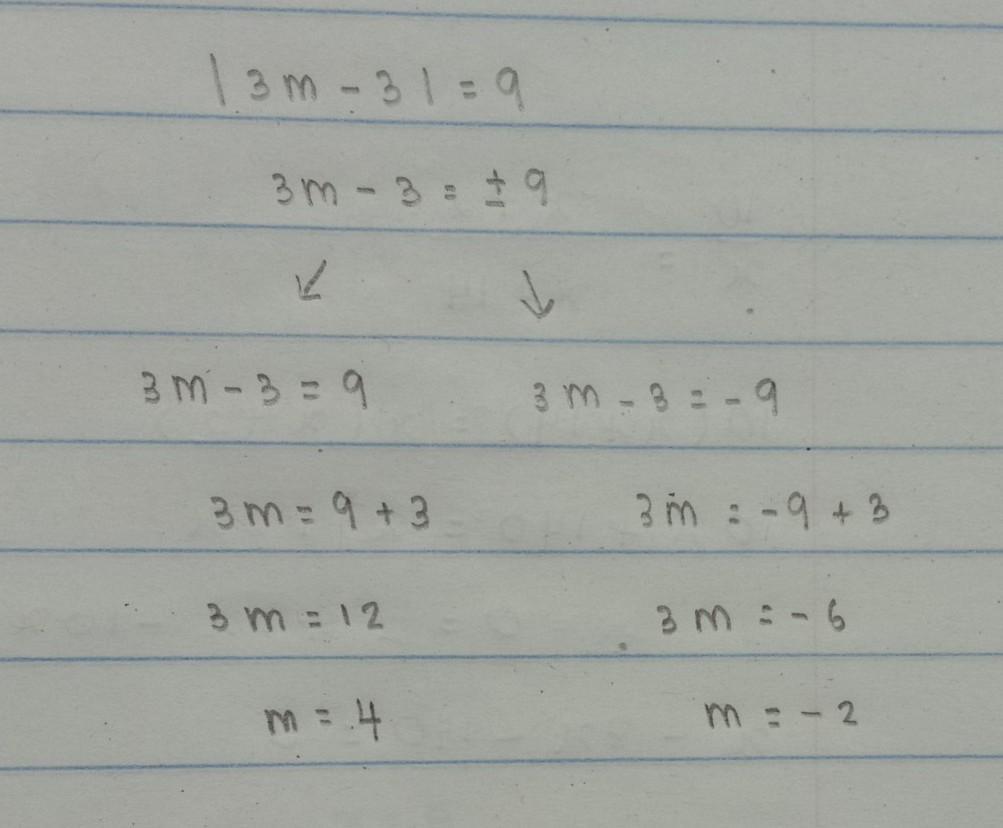 |3m - 3| = 9
3m - 3 = ± 9
↙ ↓
3m - 3 = 9 3m - 3 = - 9
3m = 9 + 3 3m = - 9 + 3
3m = 12 3m = - 6
m = 4 m = - 2